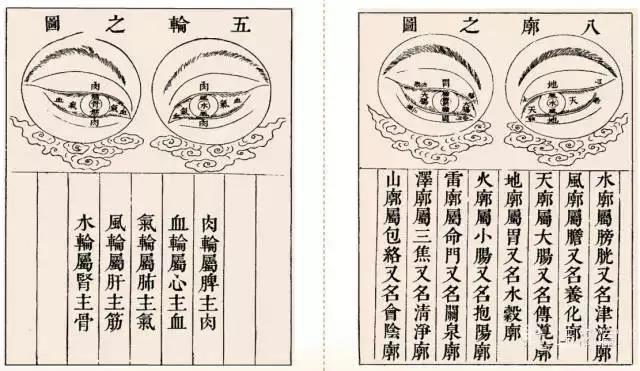 五輪之圖
肉
血
氣
水
氣
血
肉
肉
血
氣
氣
血
肉
肉輪屬脾主肉
血輪屬心主血
氣輪屬肺主氣
風輪屬肝主筋
水輪屬腎主骨
八廓之圖
地
天
天
地
胃
大腸
水廓屬膀胱又名津液廓
風廓屬膽又名養化廓
天廓屬大腸又名傳導廓
地廓屬胃又名水穀廓
火廓屬小腸又名抱陽廓
雷廓屬命門又名關泉廓
澤廓屬三焦又名清淨廓
山廓屬包絡又名會陰廓